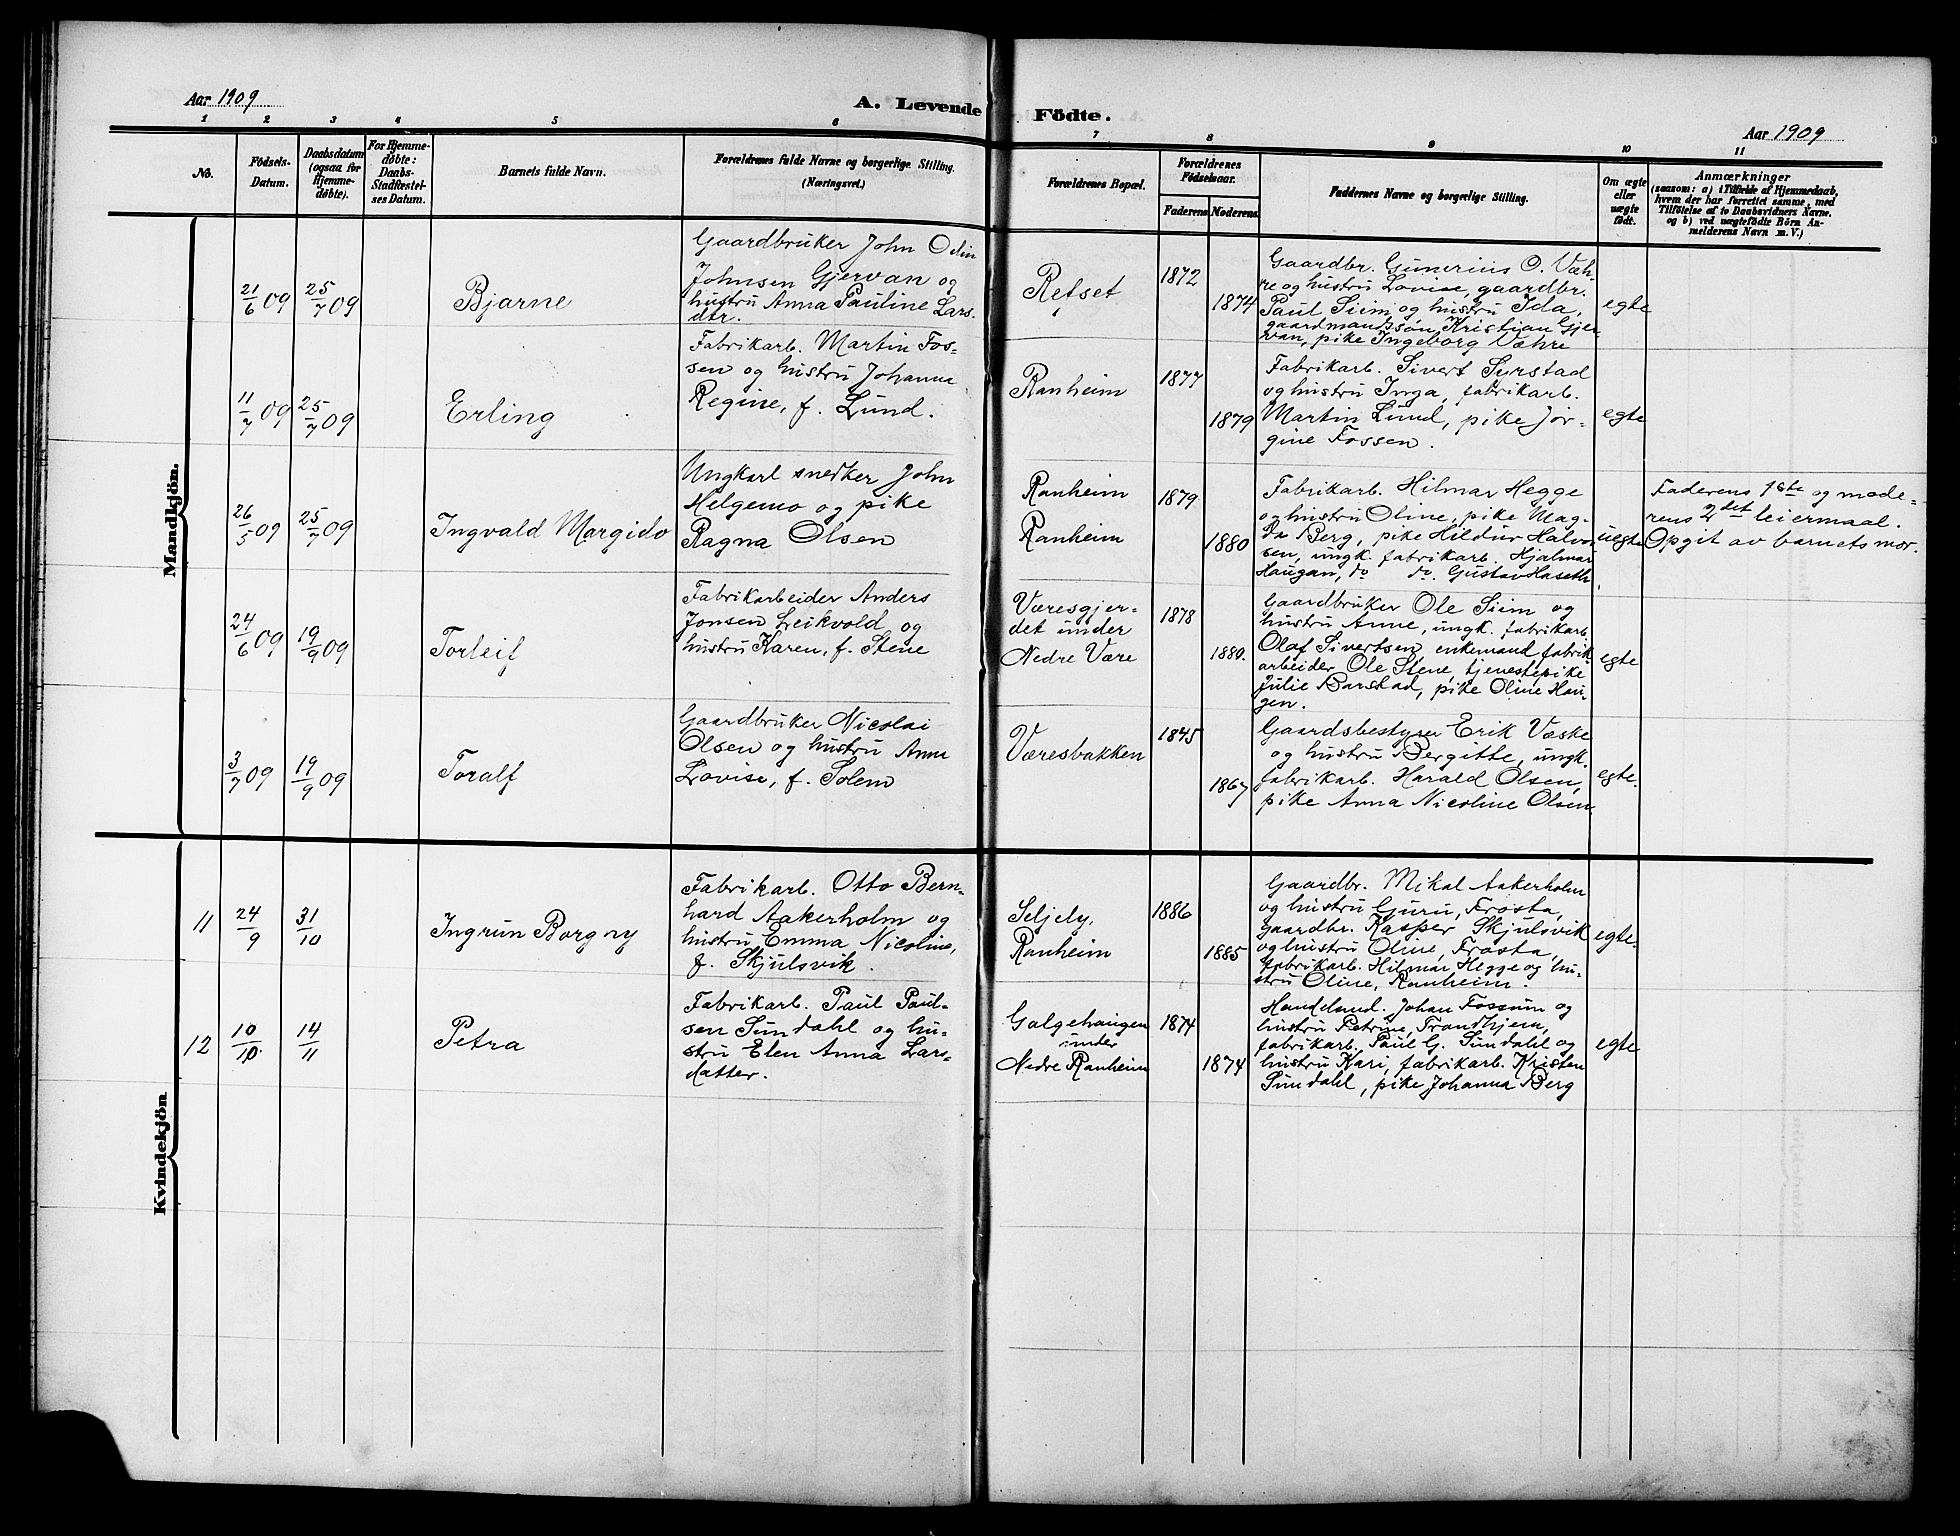 Aar 1909
A. Levende Födte.
Aar 1909
1 2 3 4 5 6 7 8 9 10 11
No.
Födsels-
Datum.
Daabsdatum
(ogsaa for
Hjemme-
döbte).
For Hjemme-
døbte:
Daabs-
Stadfæstel-
ses Datum.
Barnets fulde Navn.
Forældrenes fulde Navne og borgerlige Stilling.
(Næringsvei.)
Forældrenes Bopæl.
Forældrenes
Födselsaar.
Faderens
Moderens
Faddernes Navne og borgerlige Stilling.
Om ægte
eller
uægte
født.
Anmærkninger
(saasom: a) i Tilfælde af Hjemmedaab,
hvem der har forrettet samme, med
Tilföielse af to Daabsvidners Navne.
og b) ved uægtefödte Börn An-
melderens Navn m. V.)
Mandkjön.
21/6 09
25/7 09
Bjarne
Gaardbruker John Odin
Johnsen Gjervan og
hustru Anna Pauline Lars-
dtr.
Retset
1872
1874
Gaardbr. Gunerius O. Væh-
re og hustru Lovise, gaardbr.
Paul Siem og hustru Ida,
gaardmandssøn Kristian Gjer-
van, pike Ingeborg Væhre
egte
11/7 09
25/7 09
Erling
Fabrikarb. Martin Fos-
sen og hustru Johanna
Regine, f. Lund.
Ranheim
1877
1879
Fabrikarb. Sivert Syrstad
og hustru Inga, fabrikarb.
Martin Lund, pike Jør-
gine Fossen.
egte
26/5 09
25/7 09
Ingvald Margido
Ungkarl snedker John
Helgemo og pike
Ragna Olsen
Ranheim
Ranheim
1879
1880
Fabrikarb. Hilmar Hegge
og hustru Oline, pike Mag-
da Berg, pike Hildur Halvor-
sen, ungk. fabrikarb. Hjalmar
Haugan, do do. Gustav Haseth.
uegte
Faderens 1ste og mode-
rens 2det leiermaal.
Opgit av barnets mor.
24/6 09
19/9 09
Torleif
Fabrikarbeider Anders
Jonsen Leikvold og
hustru Karen, f. Stene
Væresgjer-
det under
Nedre Være
1878
1880.
Gaardbruker Ole Siem og
hustru Anne, ungk. fabrikarb.
Olaf Sivertsen, enkemand fabrik-
arbeider Ole Stene, tjenestepike
Julie Barstad, pike Oline Hau-
gen.
egte
3/7 09
19/9 09
Toralf
Gaardbruker Nicolai
Olsen og hustru Anna
Lovise, f. Solem
Væresbakken
1845
1867
Gaardsbestyrer Erik Væske
og hustru Bergitte, ungk.
fabrikarb. Harald Olsen,
pike Anna Nicoline Olsen.
egte.
Kvindekjön
11
24/9
31/10
Ingrun Borgny
Fabrikarb. Otto Bern-
hard Aakerholm og
hustru Emma Nicoline,
f. Skjulsvik.
Seljely,
Ranheim
1886
1885
Gaardbr. Mikal Aakerholm
og hustru Guru, Frosta,
gaardbr. Kasper Skjulsvik
og hustru Oline, Frosta,
fabrikarb. Hilmar Hegge og hu-
stru Oline, Ranheim.
egte.
12
10/10.
14/11
Petra
Fabrikarb. Paul Paul-
sen Sundahl og hu-
stru Elen Anna Lars-
datter.
Galgehaugen
under
Nedre Ranheim
1874
1874
Handelsmd. Johan Fossum og
hustru Petrine, Trondhjem,
fabrikarb. Paul G. Sundahl og
hustru Kari, fabrikarb. Kristen
Sundahl, pike Johanna Berg
egte